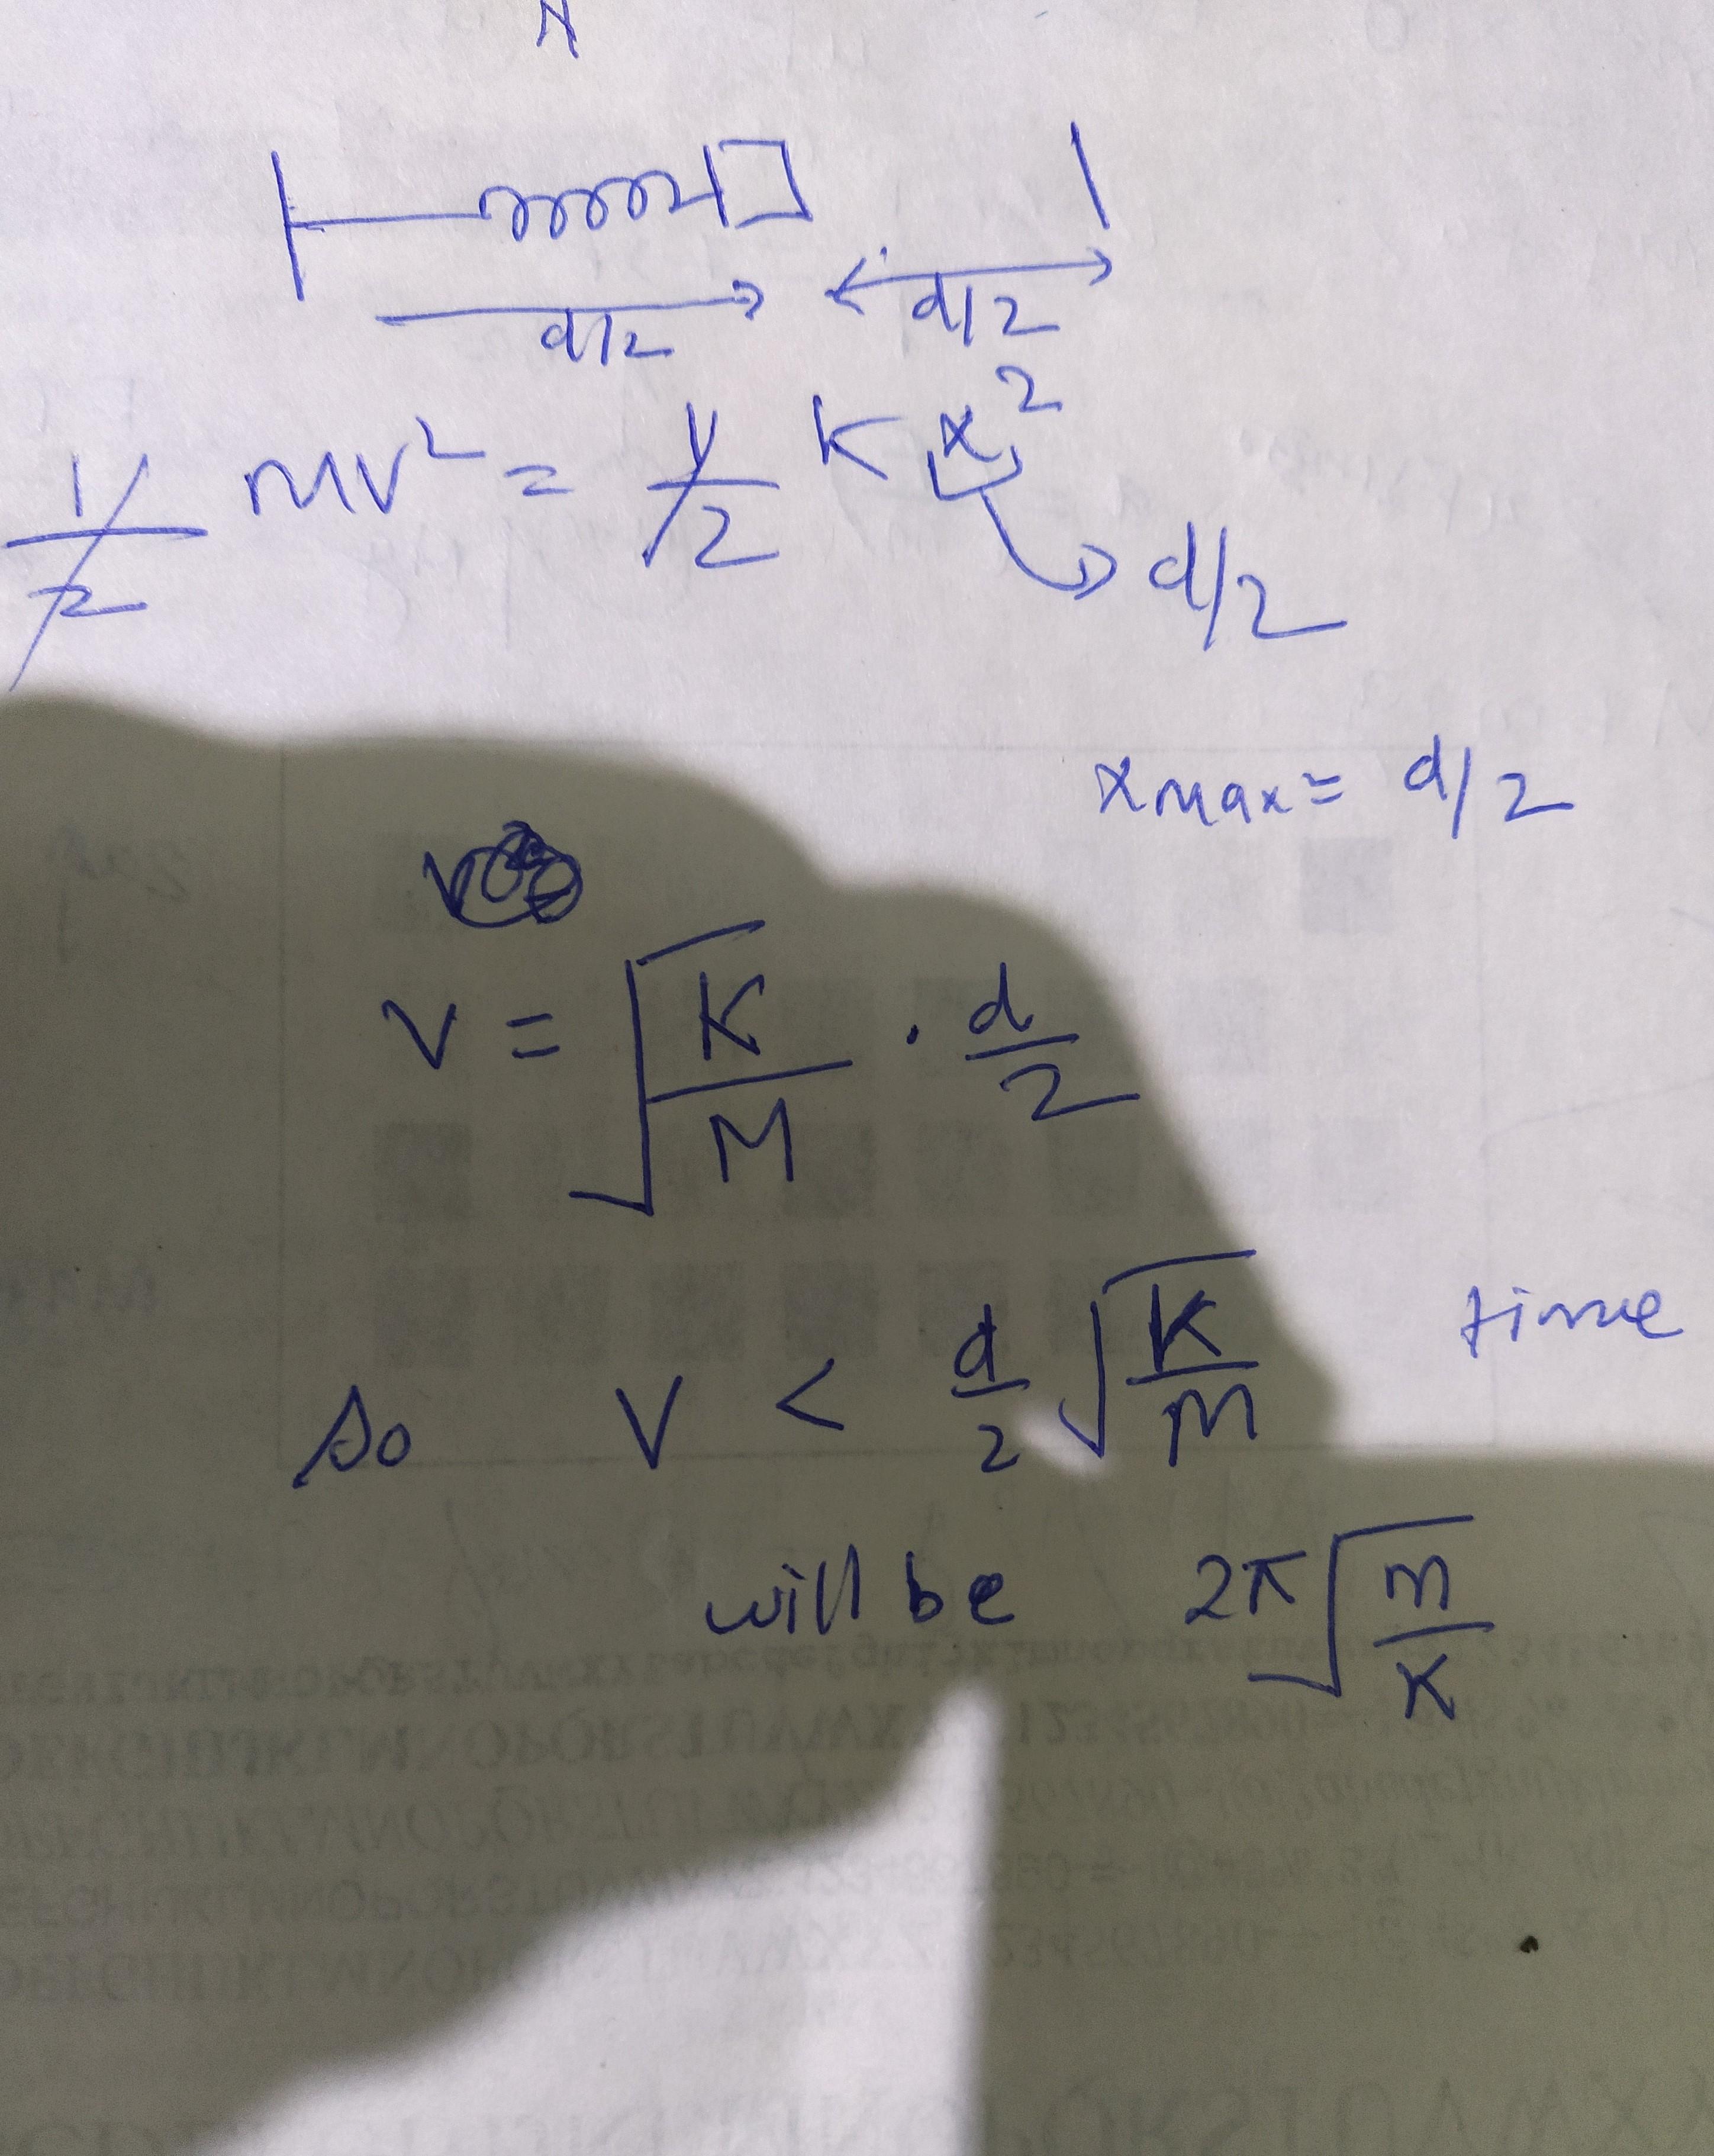 d/2 d/2
1/2 mv² = 1/2 K x² → d/2
xmax = d/2
v = √(K/M) · d/2
so v < d/2 √(K/m) time
will be 2π √(m/K)